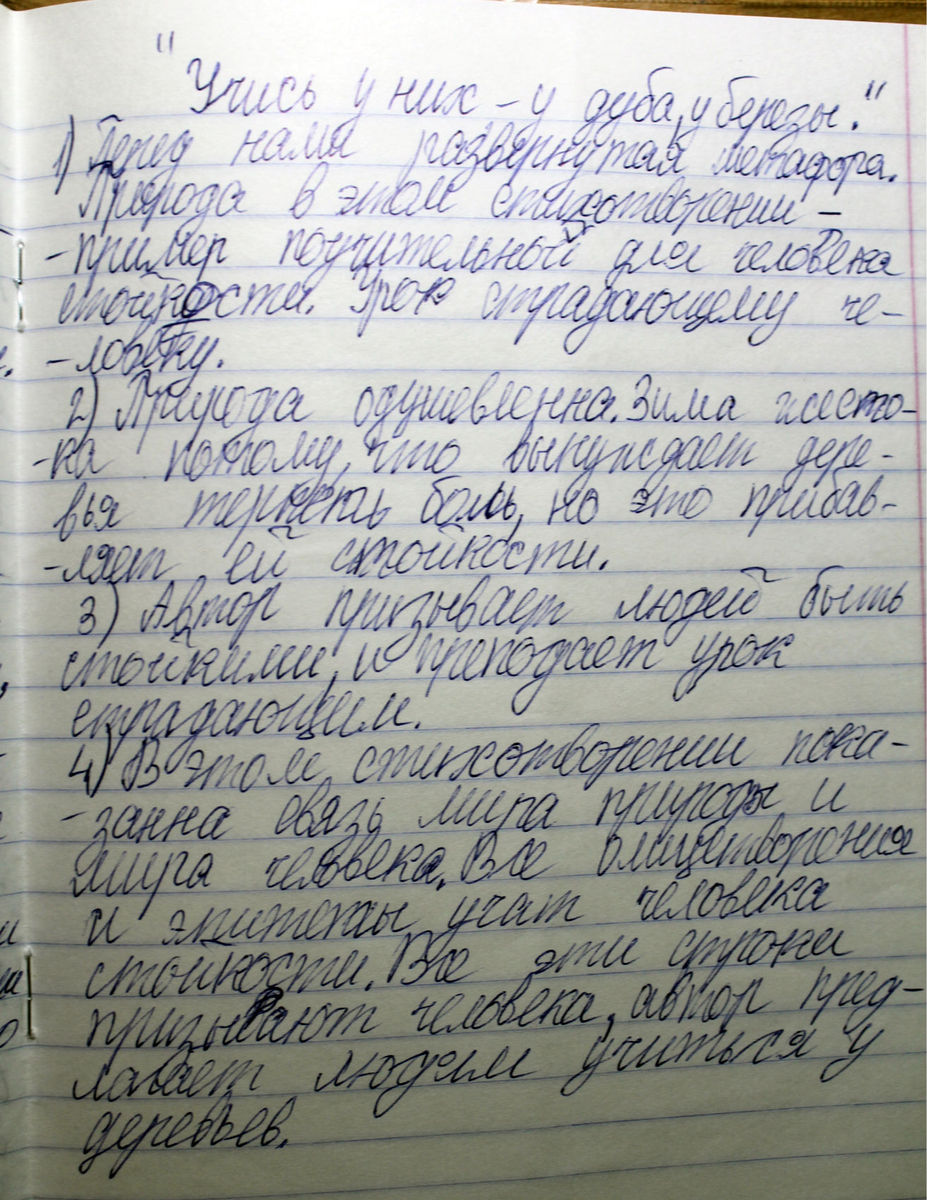 "Учись у них – у дуба, у березы."
1) Перед нами развернутая метафора.
Природа в этом стихотворении –
- пример поучительной для человека
стойкости. Урок страдающему че-
- ловеку.
2) Природа одушевленна. Зима жесто-
- ка потому, что вынуждает дере-
вья терпеть боль, но это прибав-
- ляет ей стойкости.
3) Автор призывает людей быть
стойкими, и преподает урок
страдающим.
4) В этом стихотворении пока-
- занна связь мира природы и
мира человека. Все олицетворения
и эпитеты учат человека
стойкости. Все эти строки
призывают человека, автор пред-
лагает людям учиться у
деревьев.